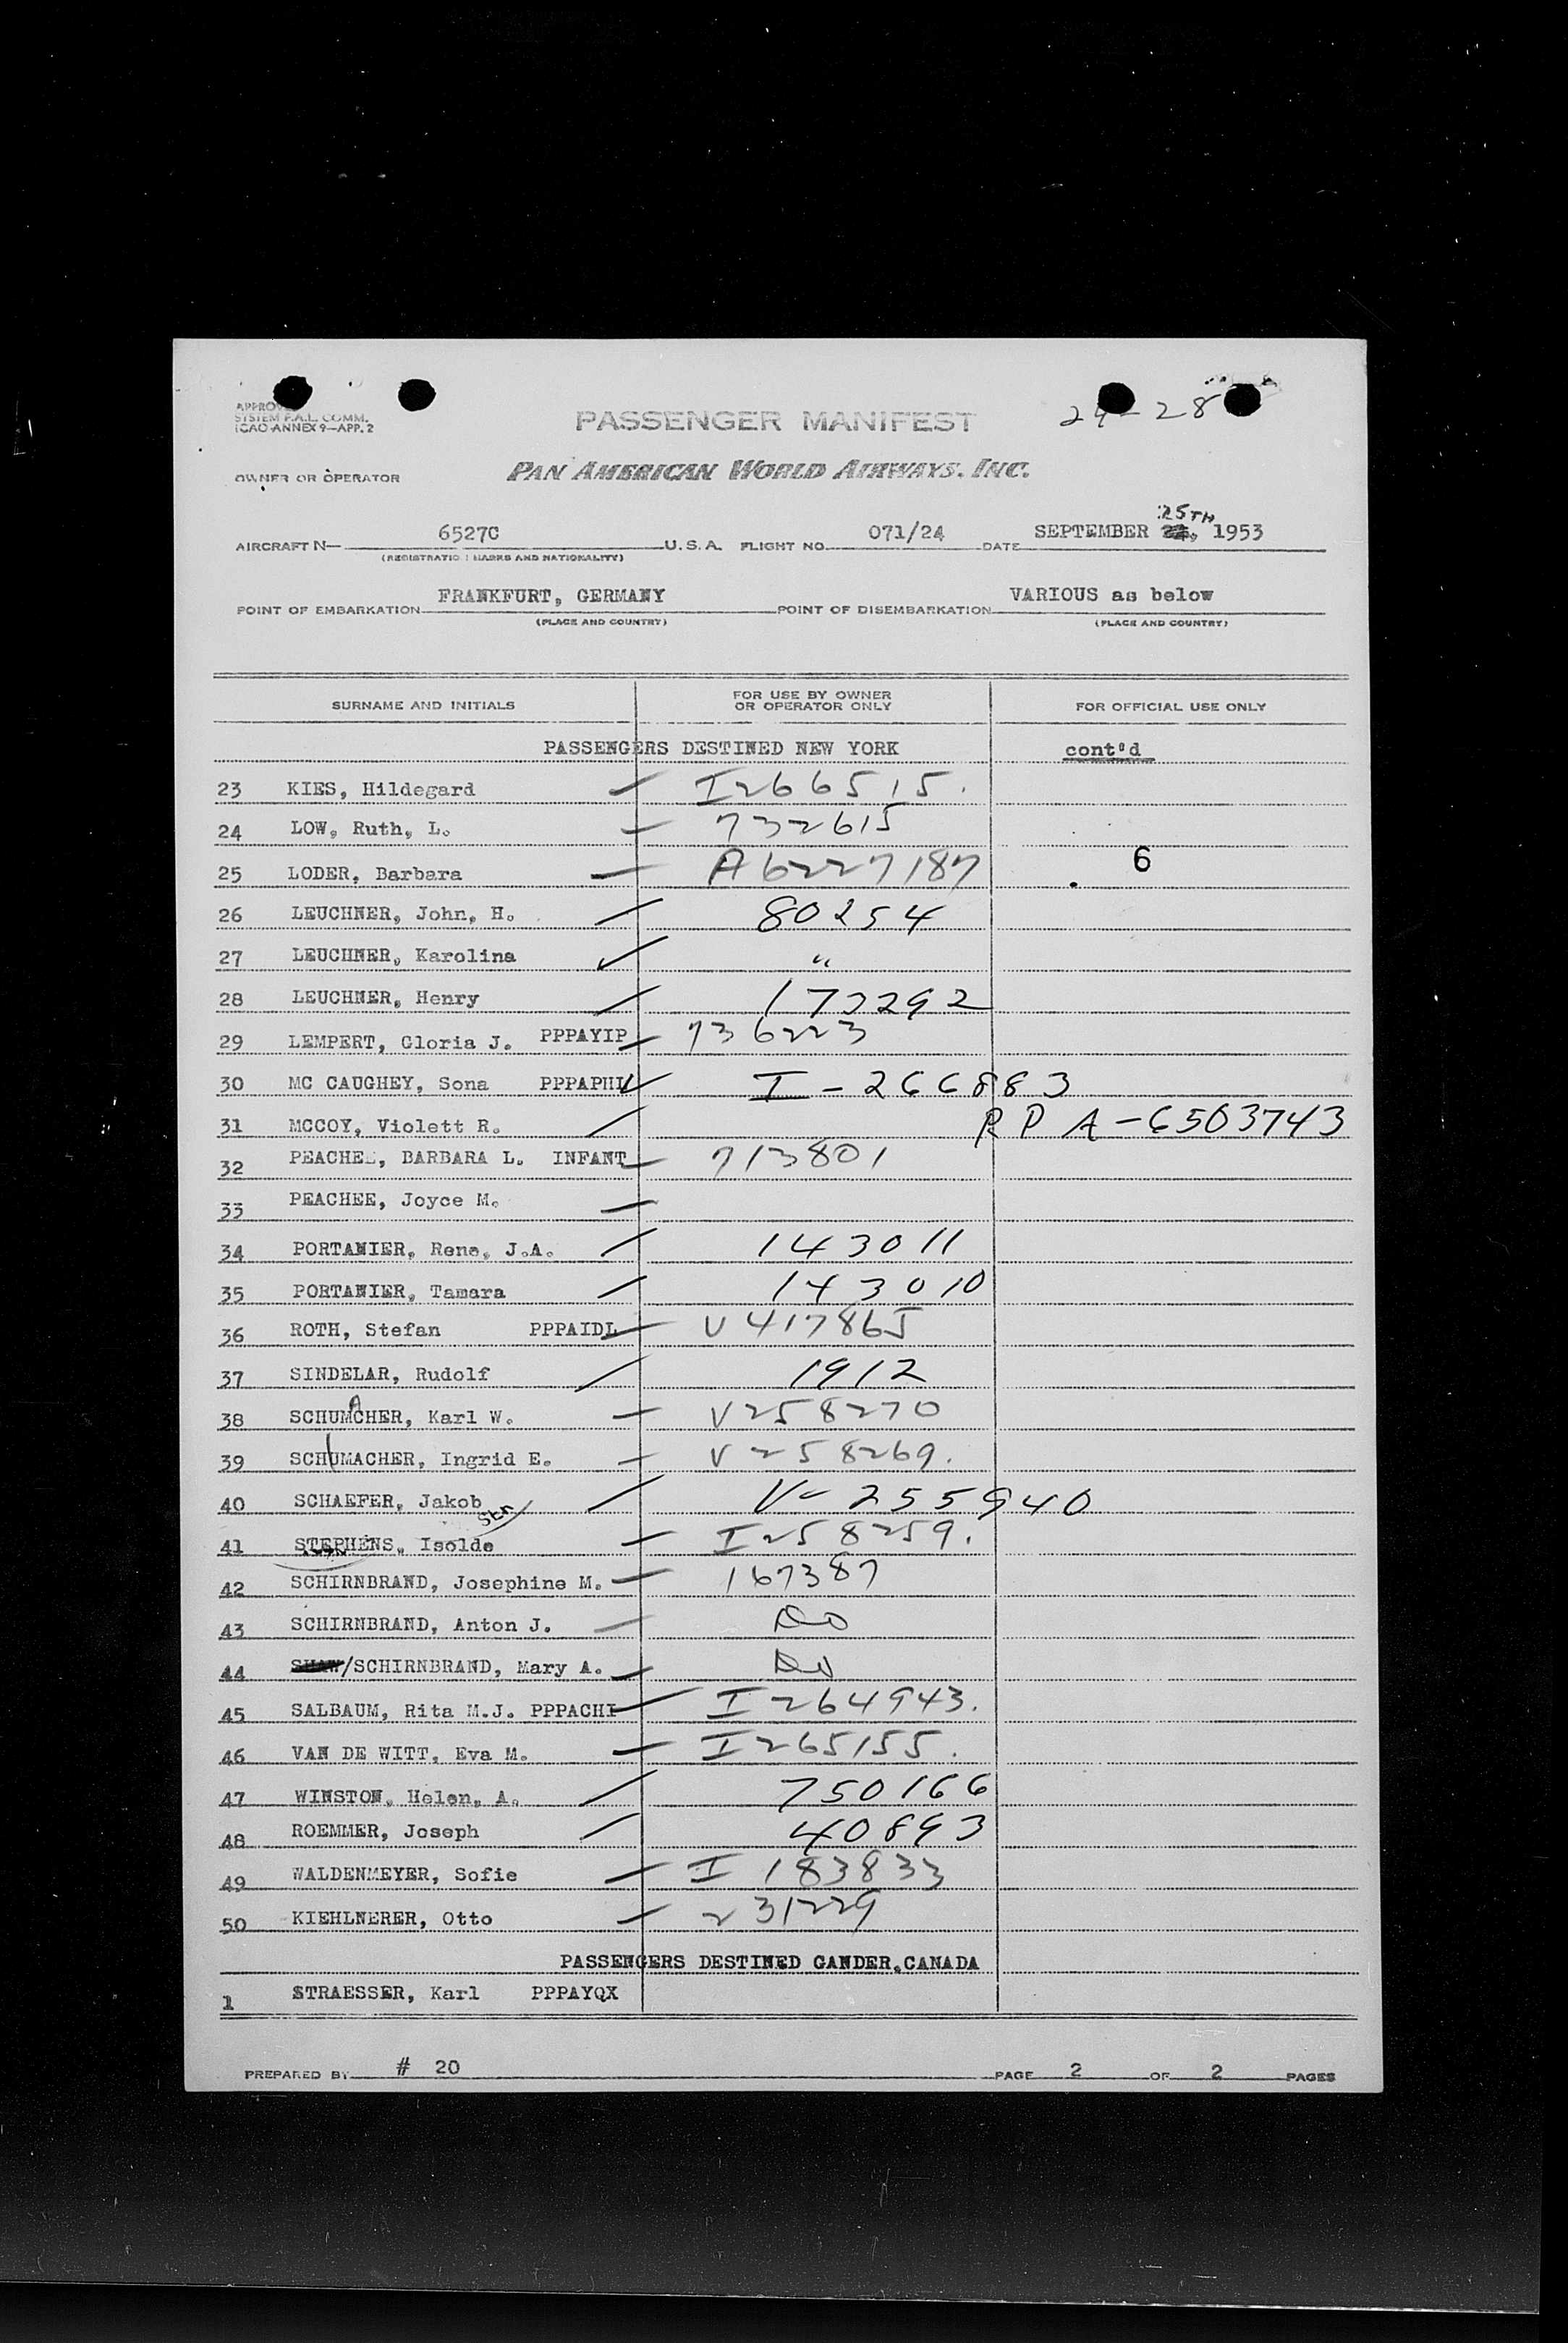 SYSTEM F.A.L. COMM.
ICAO ANNEX 9—APP. 2
PASSENGER MANIFEST
28
OWNER OR OPERATOR PAN AMERICAN WORLD AIRWAYS, INC.
25TH
AIRCRAFT N— 6527C U.S.A. FLIGHT NO. 071/24 DATE SEPTEMBER , 1953
(REGISTRATION MARKS AND NATIONALITY)
POINT OF EMBARKATION FRANKFURT, GERMANY POINT OF DISEMBARKATION VARIOUS as below
(PLACE AND COUNTRY) (PLACE AND COUNTRY)
SURNAME AND INITIALS FOR USE BY OWNER OR OPERATOR ONLY FOR OFFICIAL USE ONLY
PASSENGERS DESTINED NEW YORK cont'd
23 KIES, Hildegard I266515.
24 LOW, Ruth, L. 732615
25 LODER, Barbara A6227187 6
26 LEUCHNER, John, H. 80254
27 LEUCHNER, Karolina "
28 LEUCHNER, Henry 173292
29 LEMPERT, Gloria J. PPPAYIP 736223
30 MC CAUGHEY, Sona PPPAPHL I-266883
31 MCCOY, Violett R. RP A-6503743
32 PEACHEE, BARBARA L. INFANT 713801
33 PEACHEE, Joyce M.
34 PORTANIER, Rene, J.A. 143011
35 PORTANIER, Tamara 143010
36 ROTH, Stefan PPPAIDL V417865
37 SINDELAR, Rudolf 1912
38 SCHUMACHER, Karl W. V258270
39 SCHUMACHER, Ingrid E. V258269.
40 SCHAEFER, Jakob V-255940
41 STEPHENS, Isolde I258259.
42 SCHIRNBRAND, Josephine M. 167387
43 SCHIRNBRAND, Anton J. Do
44 SHAW/SCHIRNBRAND, Mary A. Do
45 SALBAUM, Rita M.J. PPPACHI I264943.
46 VAN DE WITT, Eva M. I265155.
47 WINSTON, Helen, A. 750166
48 ROEMMER, Joseph 40893
49 WALDENMEYER, Sofie I 183833
50 KIEHLNERER, Otto 231229
PASSENGERS DESTINED GANDER, CANADA
1 STRAESSER, Karl PPPAYQX
PREPARED BY # 20 PAGE 2 OF 2 PAGES